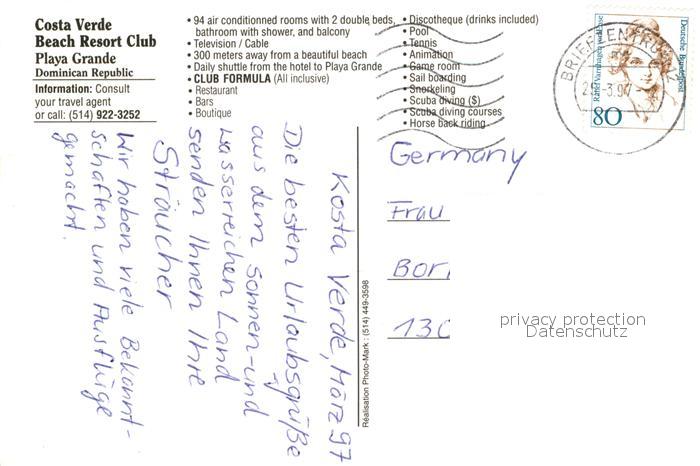 Costa Verde
Beach Resort Club
Playa Grande
Dominican Republic
Information: Consult
your travel agent
or call: (514) 922-3252
• 94 air conditionned rooms with 2 double beds,
bathroom with shower, and balcony
• Television / Cable
• 300 meters away from a beautiful beach
• Daily shuttle from the hotel to Playa Grande
• CLUB FORMULA (All inclusive)
• Restaurant
• Bars
• Boutique
• Discotheque (drinks included)
• Pool
• Tennis
• Animation
• Game room
• Sail boarding
• Snorkeling
• Scuba diving ($)
• Scuba diving courses
• Horse back riding
BRIEFZENTRUM
Deutsche Bundespost
Rahel Varnhagen von Ense
80
Kosta Verde, März 97
Die besten Urlaubsgrüße
aus dem Sonnen- und
wasserreichen Land
senden Ihnen Ihre
Sträucher
Wir haben viele Bekannt-
schaften und Ausflüge
gemacht.
Réalisation Photo-Mark : (514) 449-3598
Germany
Frau
Bor
130
privacy protection
Datenschutz